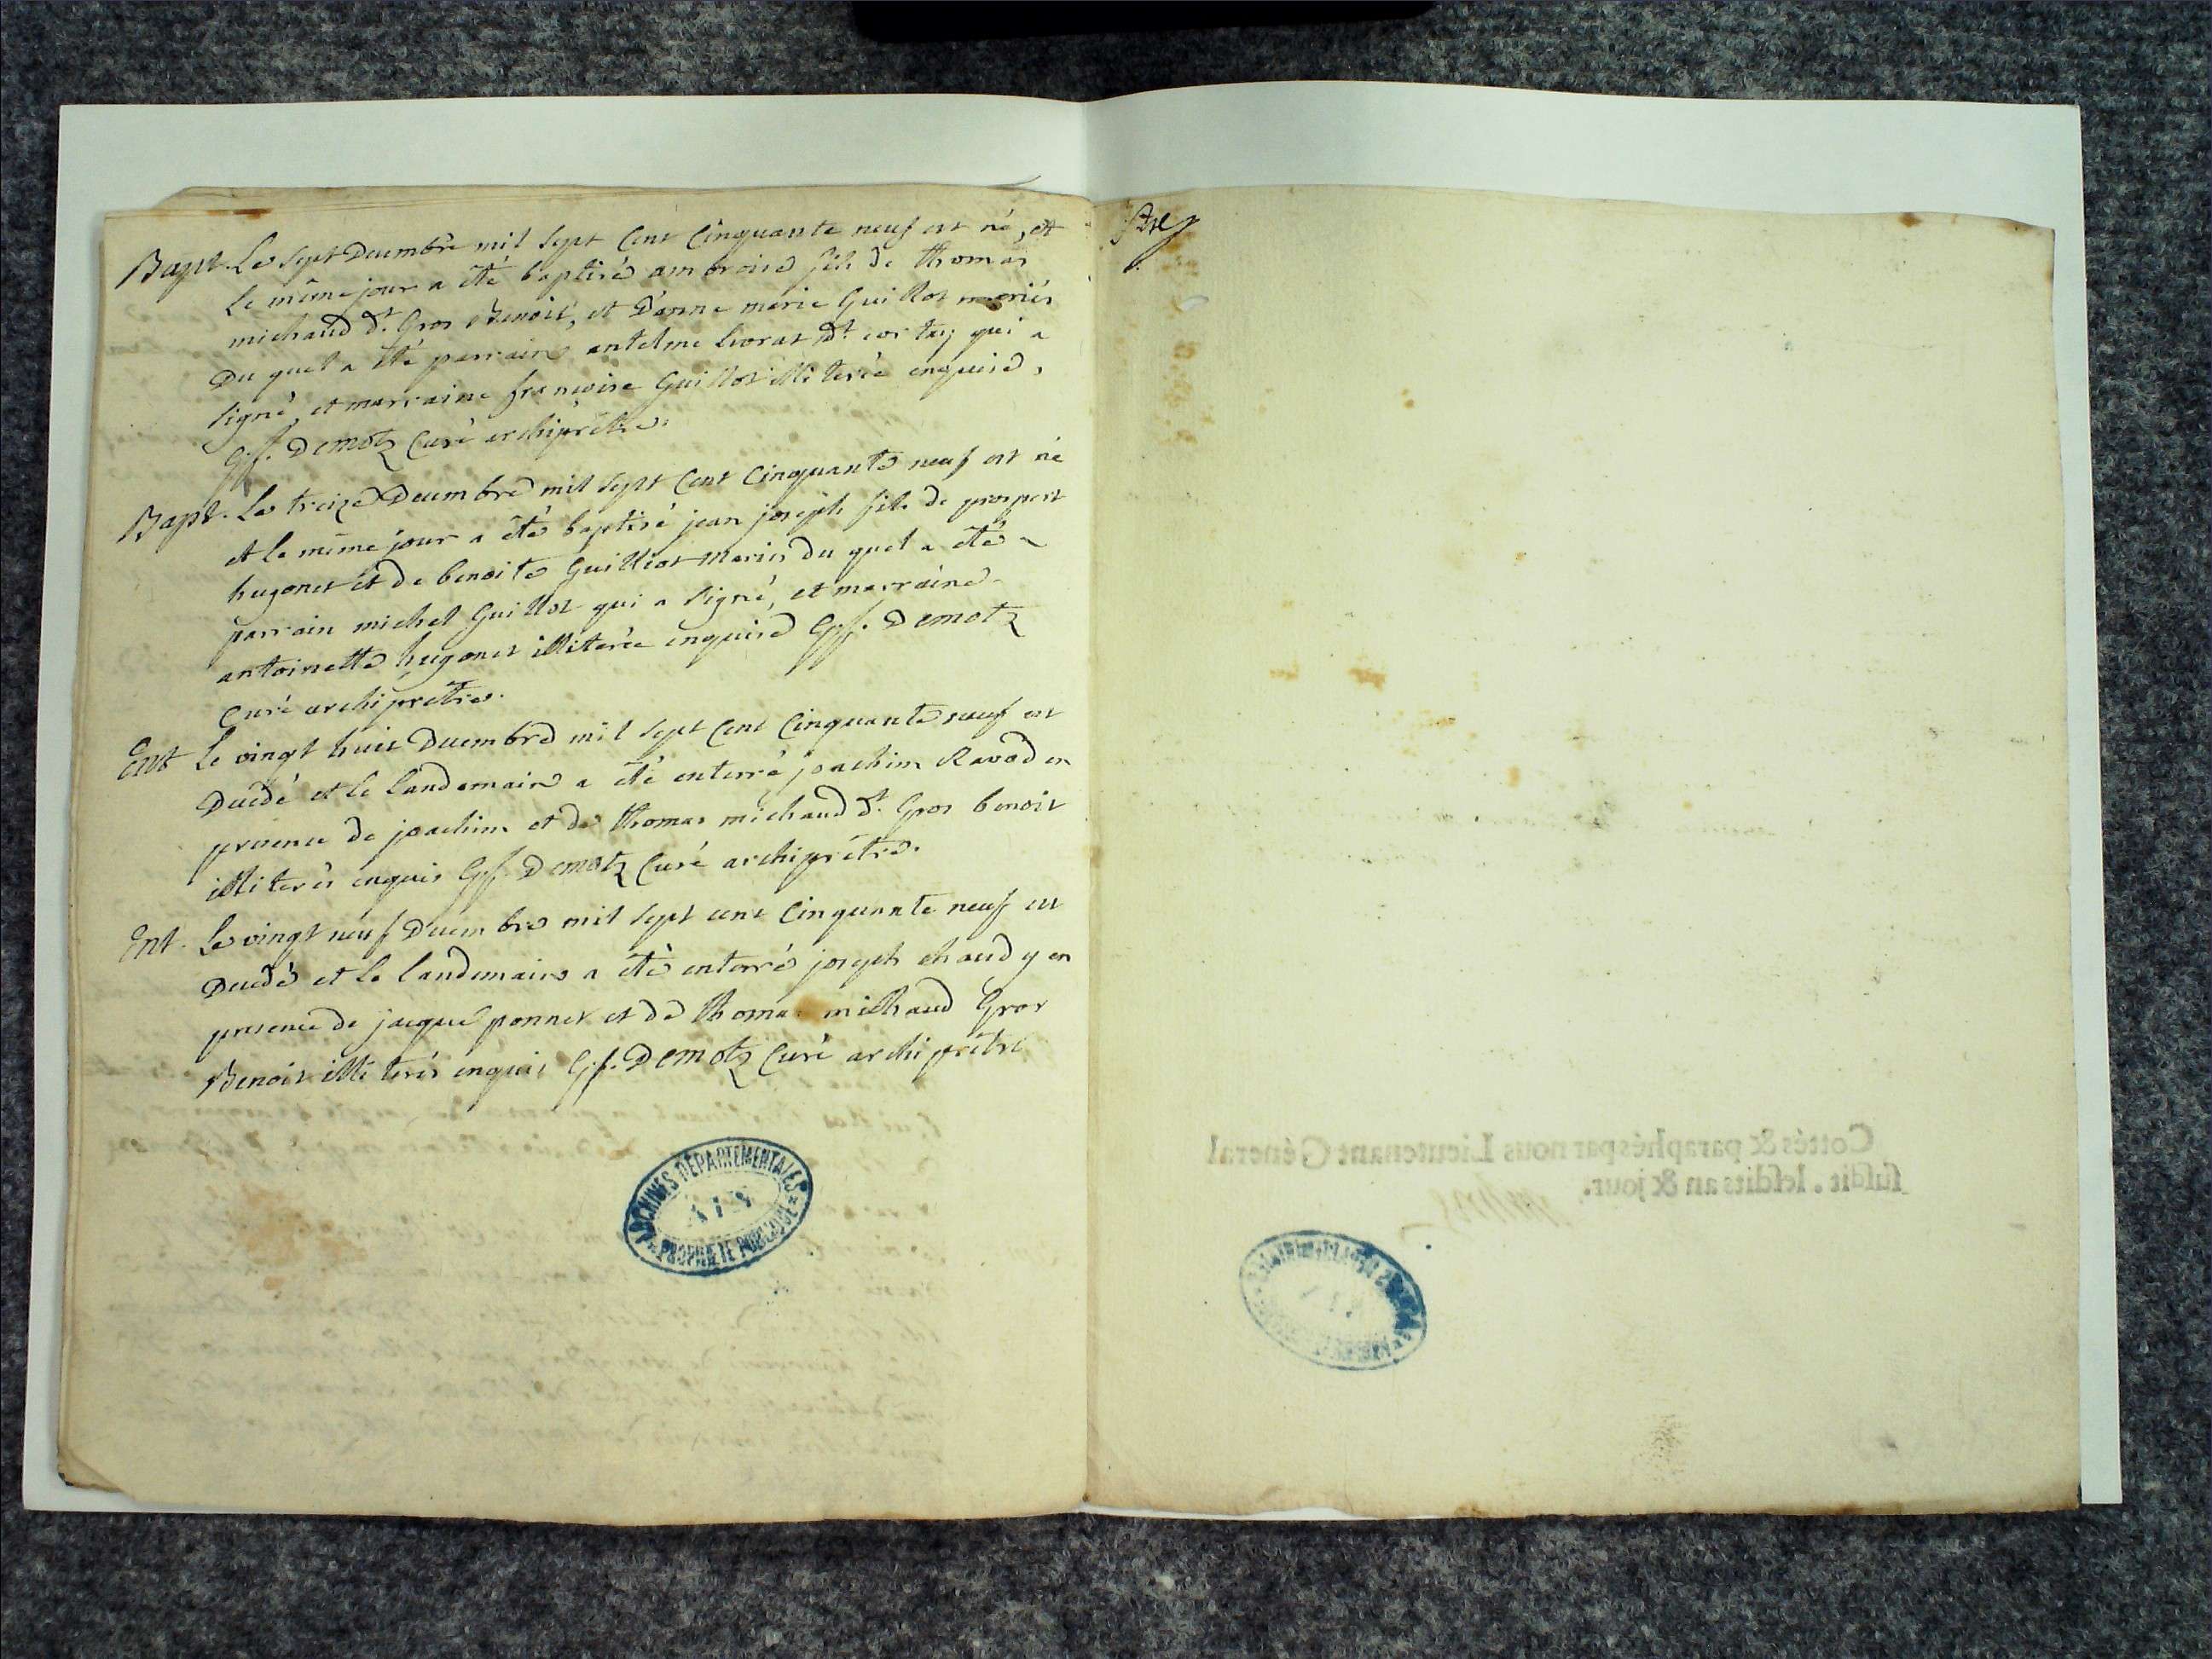 Bapt. Le sept Decembre mil sept Cent Cinquante neuf est né, et
le même jour a été baptisé ambroise fils de thomas
michaud dt. Gros Benoit, et D'anne marie Guillot mariés
Du quel a été parrain antelme livrat dt. qui a
signé, et marraine françoise Guillot illiterée enquise,
Gf. Demotz Curé archiprêtre.
Bapt. Le treize Decembre mil sept Cent Cinquante neuf est né
et le même jour a été baptisé jean joseph fils de prospert
hugonet et de benoite Guilliot Mariés du quel a été
parrain michel Guillot qui a signé, et marraine
antoinette hugonet illiterée enquise Gf. Demotz
Curé archiprêtre.
Ent Le vingt huit Decembre mil sept Cent Cinquante neuf est
Decedé et le landemain a été enterré joachim Ravod en
presence de joachim et de thomas michaud dt. Gros benoit
illiterés enquis Gf. Demotz Curé archiprêtre.
Ent. Le vingt neuf Decembre mil sept cent Cinquante neuf est
Decedé et le landemain a été enterré joseph chaudy en
presence de jacque ponnet et de thomas michaud Gros
Benoit illiterés enquis Gf. Demotz Curé archiprêtre
ARCHIVES DÉPARTEMENTALES
AIN
PROPRIÉTÉ PUBLIQUE
Cottés & paraphés par nous Lieutenant Général
susdit, lesdits an & jour.